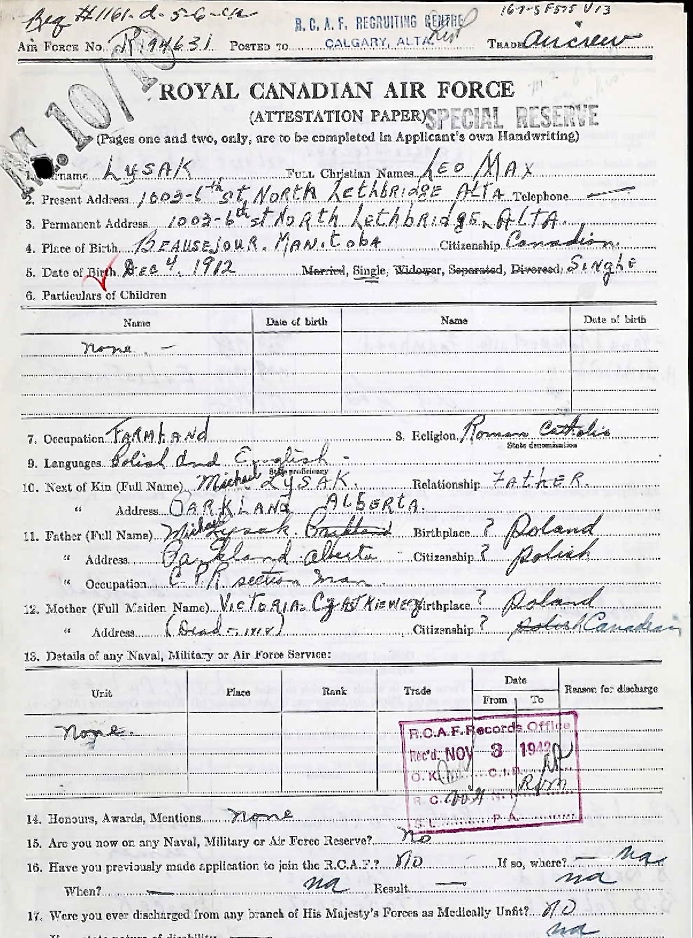 167-5 F575 V13
Req #1161-d-5-6-
R.C.A.F. RECRUITING CENTRE
AIR FORCE No. R.194631 POSTED TO CALGARY, ALTA. TRADE Aircrew
M.10/10
ROYAL CANADIAN AIR FORCE
(ATTESTATION PAPER) SPECIAL RESERVE
(Pages one and two, only, are to be completed in Applicant's own Handwriting)
1. Surname LYSAK FULL Christian Names LEO MAX
2. Present Address 1003-6th St. NORTH LEThBRIDGE ALTA Telephone —
3. Permanent Address 1003-6th st NORTH LEThbridge, ALTA.
4. Place of Birth BEAUSEJOUR. MANitobA Citizenship Canadian
5. Date of Birth Dec 4, 1912 Married, Single, Widower, Separated, Divorced: SINGLE
6. Particulars of Children
Name Date of birth Name Date of birth
None. -
7. Occupation FARMhAND 8. Religion Roman Catholic
State denomination
9. Languages Polish and English.
State proficiency
10. Next of Kin (Full Name) Michael LYSAK. Relationship FATHER.
" Address PARKLAND ALBERTA.
11. Father (Full Name) Michael Lysak Parkland Birthplace ? Poland
" Address Parkland alberta Citizenship ? polish
" Occupation C.P.R section man
12. Mother (Full Maiden Name) VICTORIA Birthplace ? Poland
" Address (Dead - ) Citizenship ? polish Canadian
13. Details of any Naval, Military or Air Force Service:
Unit Place Rank Trade Date From To Reason for discharge
None.
R.C.A.F. Records Office
Rec'd. NOV 3 1942
O.K. C.I.B.
R.C.
S.L. P.A.
14. Honours, Awards, Mentions none
15. Are you now on any Naval, Military or Air Force Reserve? No
16. Have you previously made application to join the R.C.A.F.? No If so, where? — na
When? — na Result — na
17. Were you ever discharged from any branch of His Majesty's Forces as Medically Unfit? NO
na